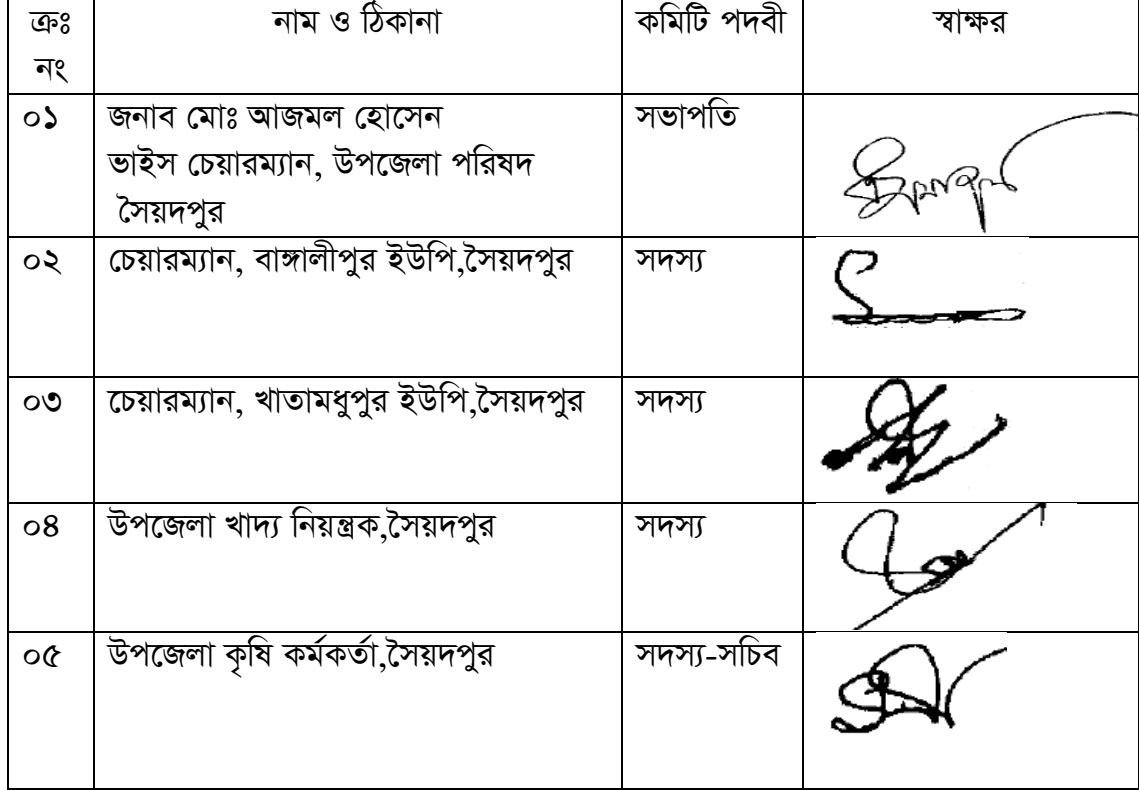 ক্রঃ নং নাম ও ঠিকানা কমিটি পদবী স্বাক্ষর
০১ জনাব মোঃ আজমল হোসেন সভাপতি
ভাইস চেয়ারম্যান, উপজেলা পরিষদ
সৈয়দপুর
০২ চেয়ারম্যান, বাঙ্গালীপুর ইউপি,সৈয়দপুর সদস্য
০৩ চেয়ারম্যান, খাতামধুপুর ইউপি,সৈয়দপুর সদস্য
০৪ উপজেলা খাদ্য নিয়ন্ত্রক,সৈয়দপুর সদস্য
০৫ উপজেলা কৃষি কর্মকর্তা,সৈয়দপুর সদস্য-সচিব